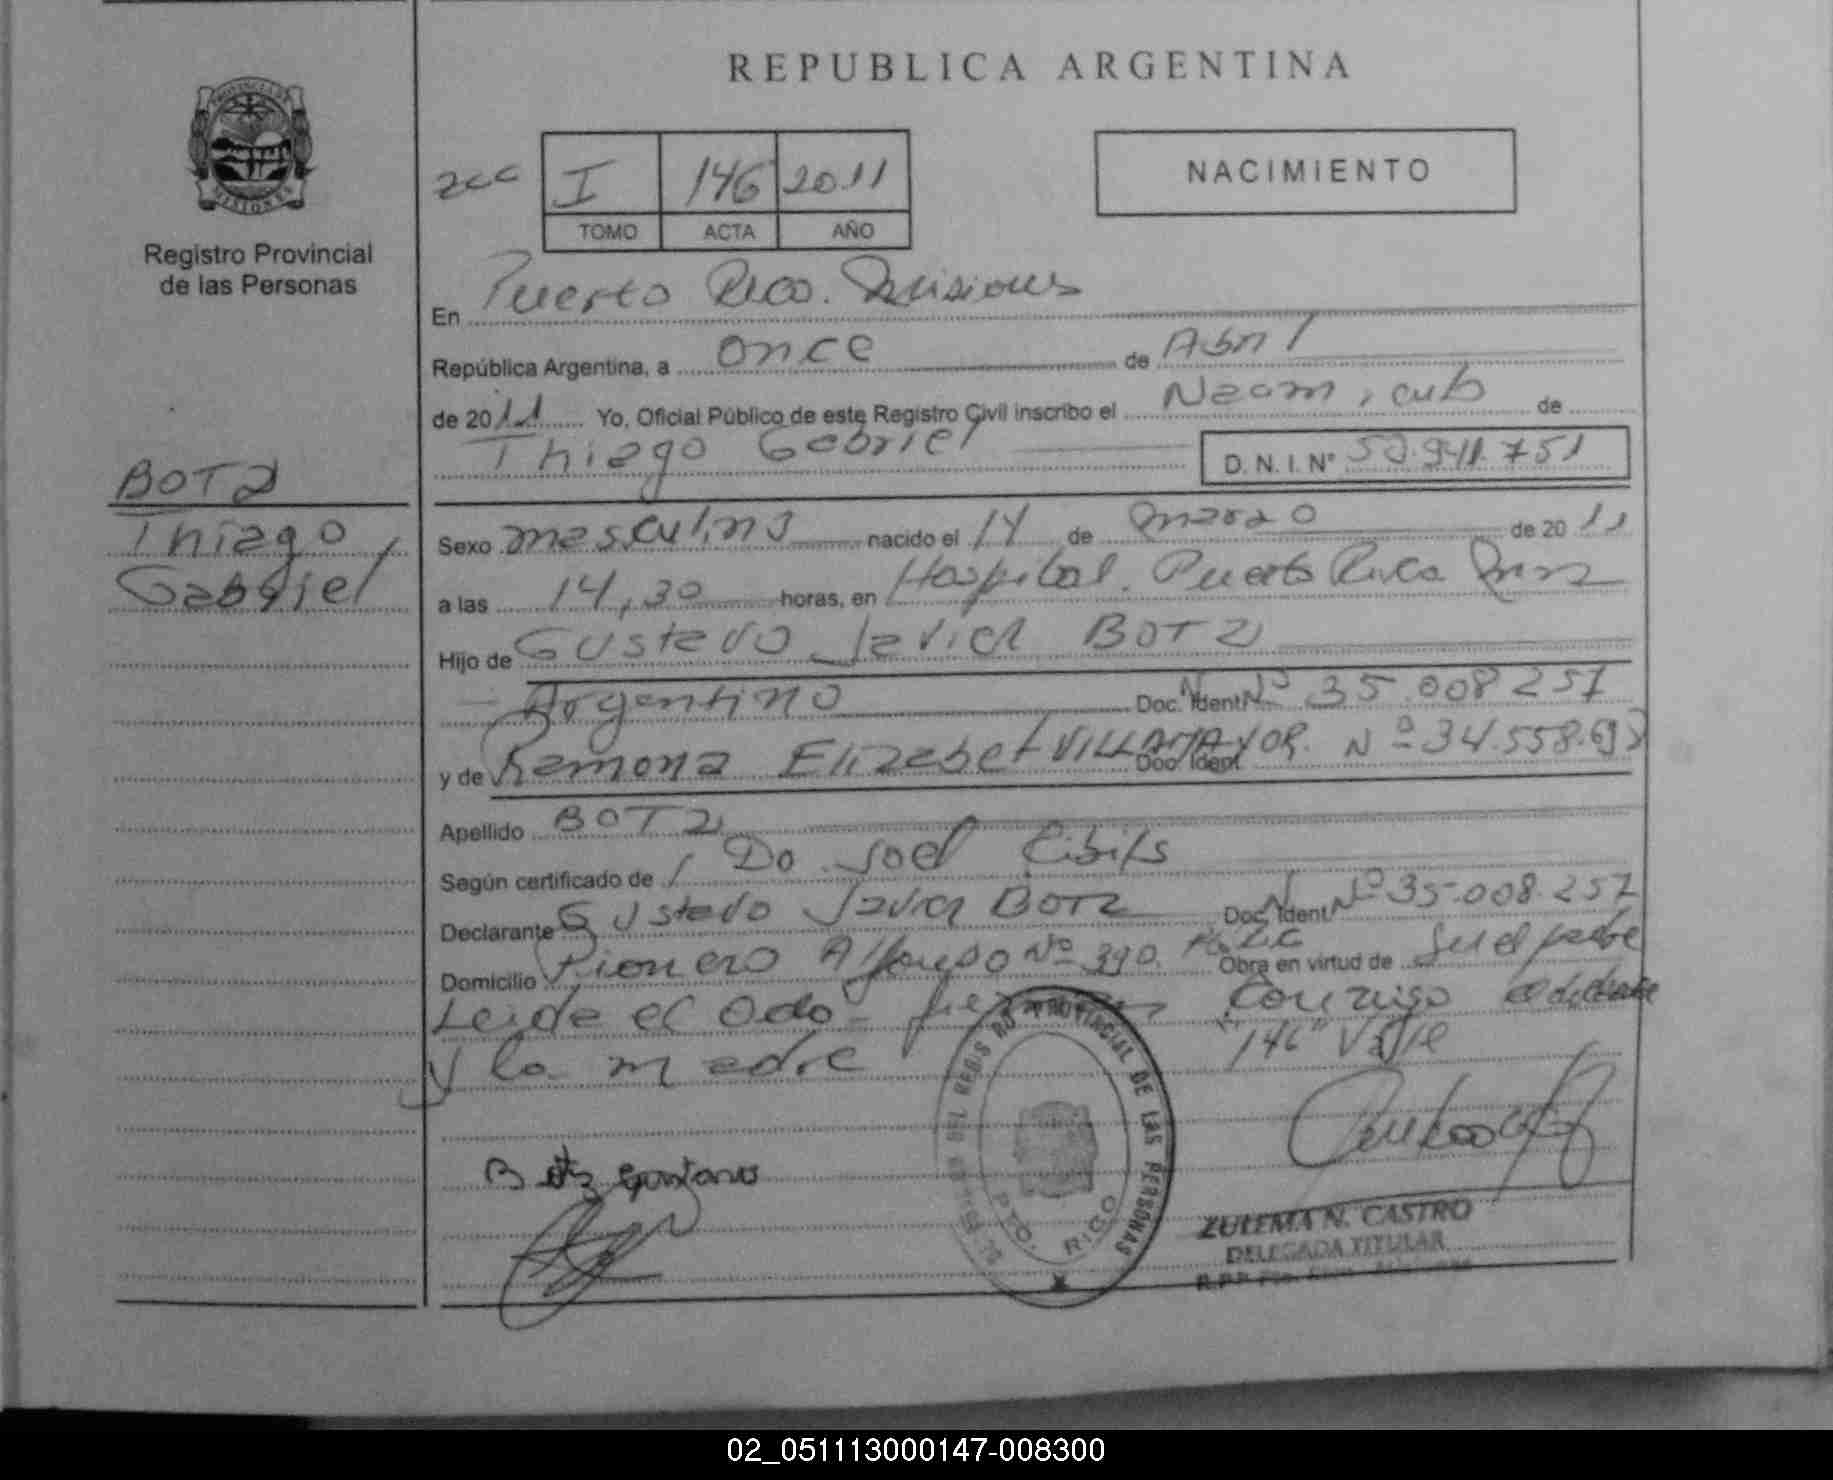 REPUBLICA ARGENTINA
PROVINCIA DE
MISIONES
Registro Provincial
de las Personas
I 146 2011
TOMO ACTA AÑO
NACIMIENTO
En Puerto Rico. Misiones
República Argentina, a once de Abril
de 2011 Yo, Oficial Público de este Registro Civil inscribo el Nacim, cub de
Thiago Gabriel D. N. I. N°
BOTZ
Thiago
Gabriel
Sexo masculino nacido el 14 de marzo de 2011
a las 14,30 horas, en Hospital. Puerto Rico
Hijo de Gustavo Javier BOTZ
Argentino Doc. Ident Nº 35.008.257
y de Ramona Elizabet VILLAMAYOR. Doc. Ident Nº 34.558.69
Apellido BOTZ
Según certificado de Joel
Declarante Gustavo Javier BOTZ Doc. Ident Nº 35.008.257
Domicilio Pionero Nº 390. Obra en virtud de ser el padre
Leida el conmigo el
y la madre "146" Vale
Botz Gustavo
DEL REGISTRO PROVINCIAL DE LAS PERSONAS
PTO. RICO
ZULEMA N. CASTRO
DELEGADA TITULAR
02_051113000147-008300